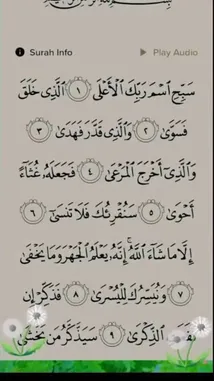 Surah Info Play Audio
سَبِّحِ ٱسْمَ رَبِّكَ ٱلْأَعْلَى ١ ٱلَّذِى خَلَقَ
فَسَوَّىٰ ٢ وَٱلَّذِى قَدَّرَ فَهَدَىٰ ٣
وَٱلَّذِىٓ أَخْرَجَ ٱلْمَرْعَىٰ ٤ فَجَعَلَهُۥ غُثَآءً
أَحْوَىٰ ٥ سَنُقْرِئُكَ فَلَا تَنسَىٰٓ ٦
إِلَّا مَا شَآءَ ٱللَّهُ ۚ إِنَّهُۥ يَعْلَمُ ٱلْجَهْرَ وَمَا يَخْفَىٰ
٧ وَنُيَسِّرُكَ لِلْيُسْرَىٰ ٨ فَذَكِّرْ إِن
ٱلذِّكْرَىٰ ٩ سَيَذَّكَّرُ مَن يَخْشَىٰ